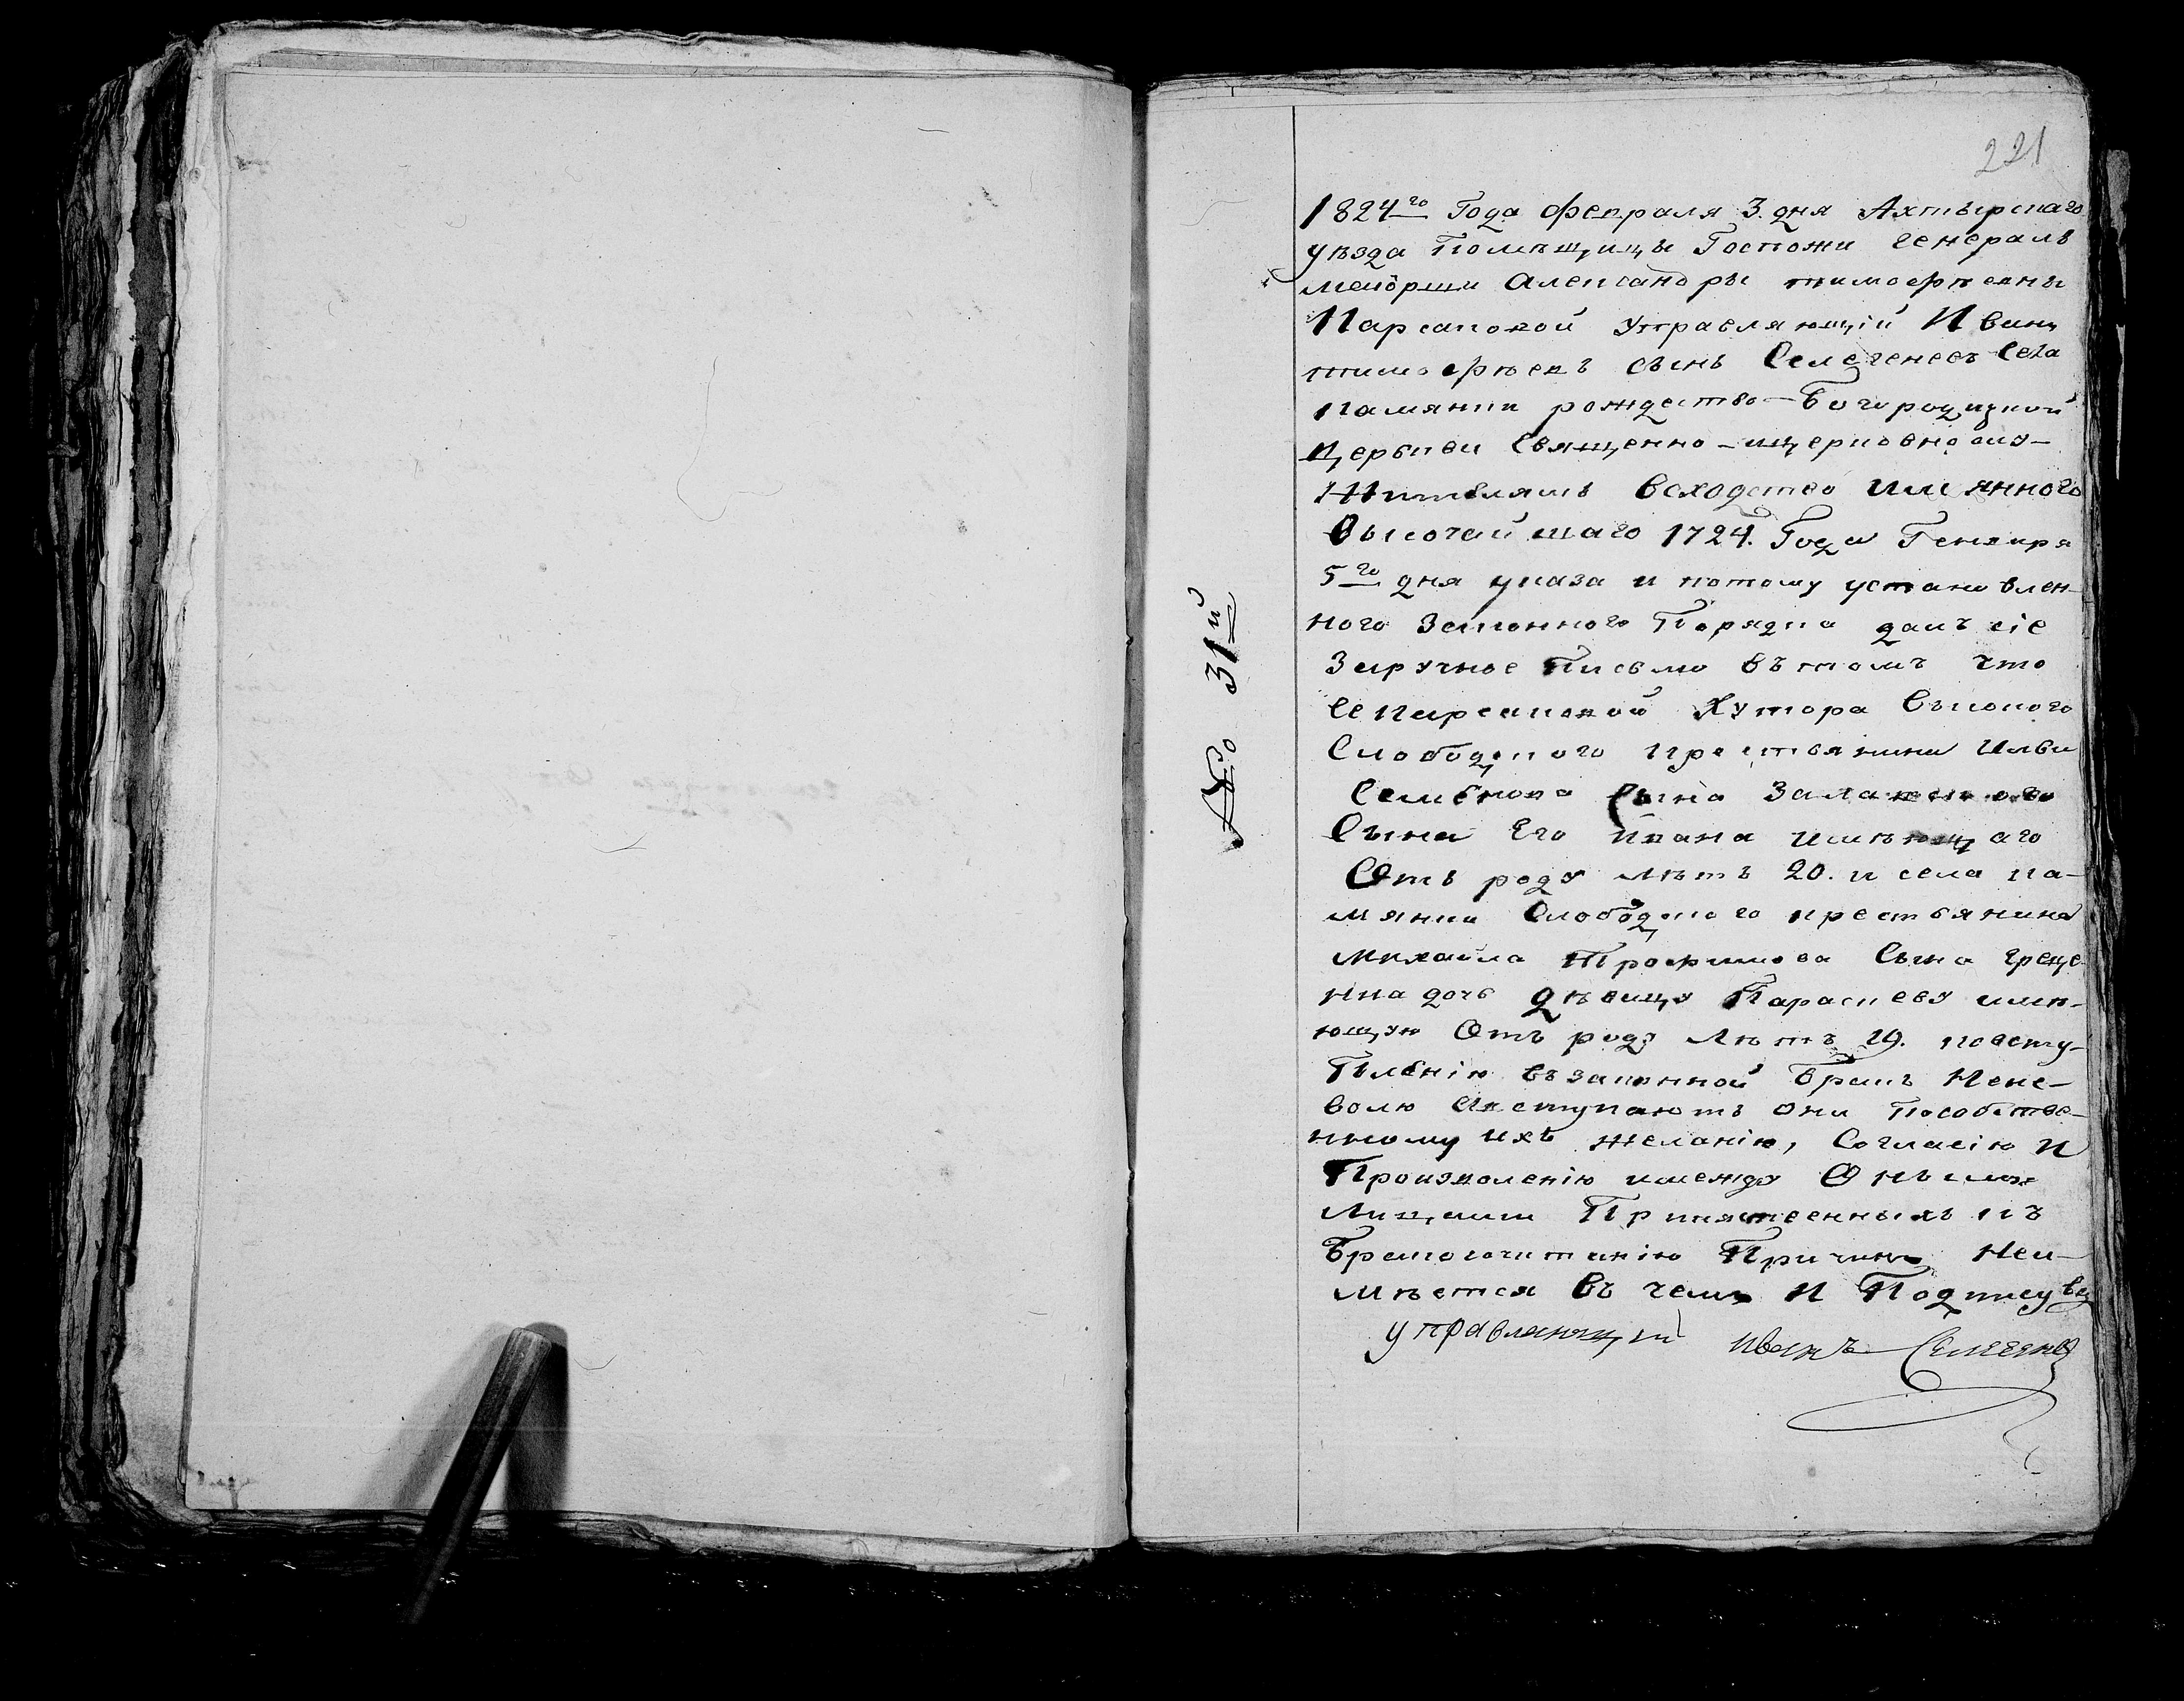 221
№ 31й
1824го Года Февраля 3. дня Ахтырскаго
уѣзда Помѣщицы Госпожи Генералъ
меиорши Александры тимофѣевны
Карсаковой Управляющій Иванъ
тимофѣевъ сынъ Селегеневъ Села
Камянки рождество-Богородицкой
Церькви Священно-церковно слу-
Жителямъ Всходство имянного
Высочайшаго 1724. Года Генваря
5го дня указа и потому установлен-
ного Законного Порядка далъ сіе
Заручное Письмо въ томъ что
Ее Карсаковой Хутора
Слободского крестьянина
Семенова Сына
Сына Его Ивана имѣющаго
Отъ роду лѣтъ 20. и села ка-
мянки Слободского крестьянина
михайла Трофимова Сына
дочь дѣвицу Параскеву имѣ-
ющую Отъ роду лѣтъ 19. повсту-
Плѣнію въ законной Бракъ Нене-
волю авступаютъ они Пособстве-
нному ихъ желанію, Согласію и
Произволенію имежду Онымы
Лицами Припятственныхъ къ
Бракосочитанію Причинъ Неи-
мѣется въ чемъ И Подпису
управляющий иванъ